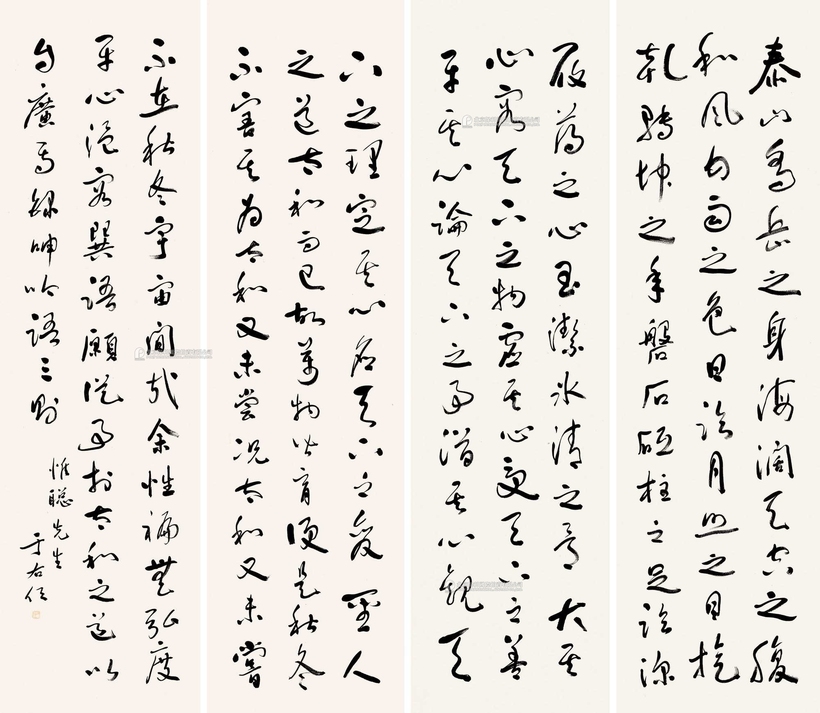 泰山喬岳之身海闊天空之腹
和風甘雨之色日臨月照之目旋
乾轉坤之手磐石砥柱之足臨深
履薄之心玉潔冰清之骨大其
心容天下之物虛其心受天下之善
平其心論天下之事潛其心觀天
下之理定其心應天下之變聖人
之道太和而已故萬物皆育便是秋冬
不害其為太和又未嘗況太和又未嘗
不在秋冬宇宙間哉余性褊無弘度
平心溫容巽語願從事於太和之道以
自廣焉錄呻吟語三則
惟聰先生
于右任